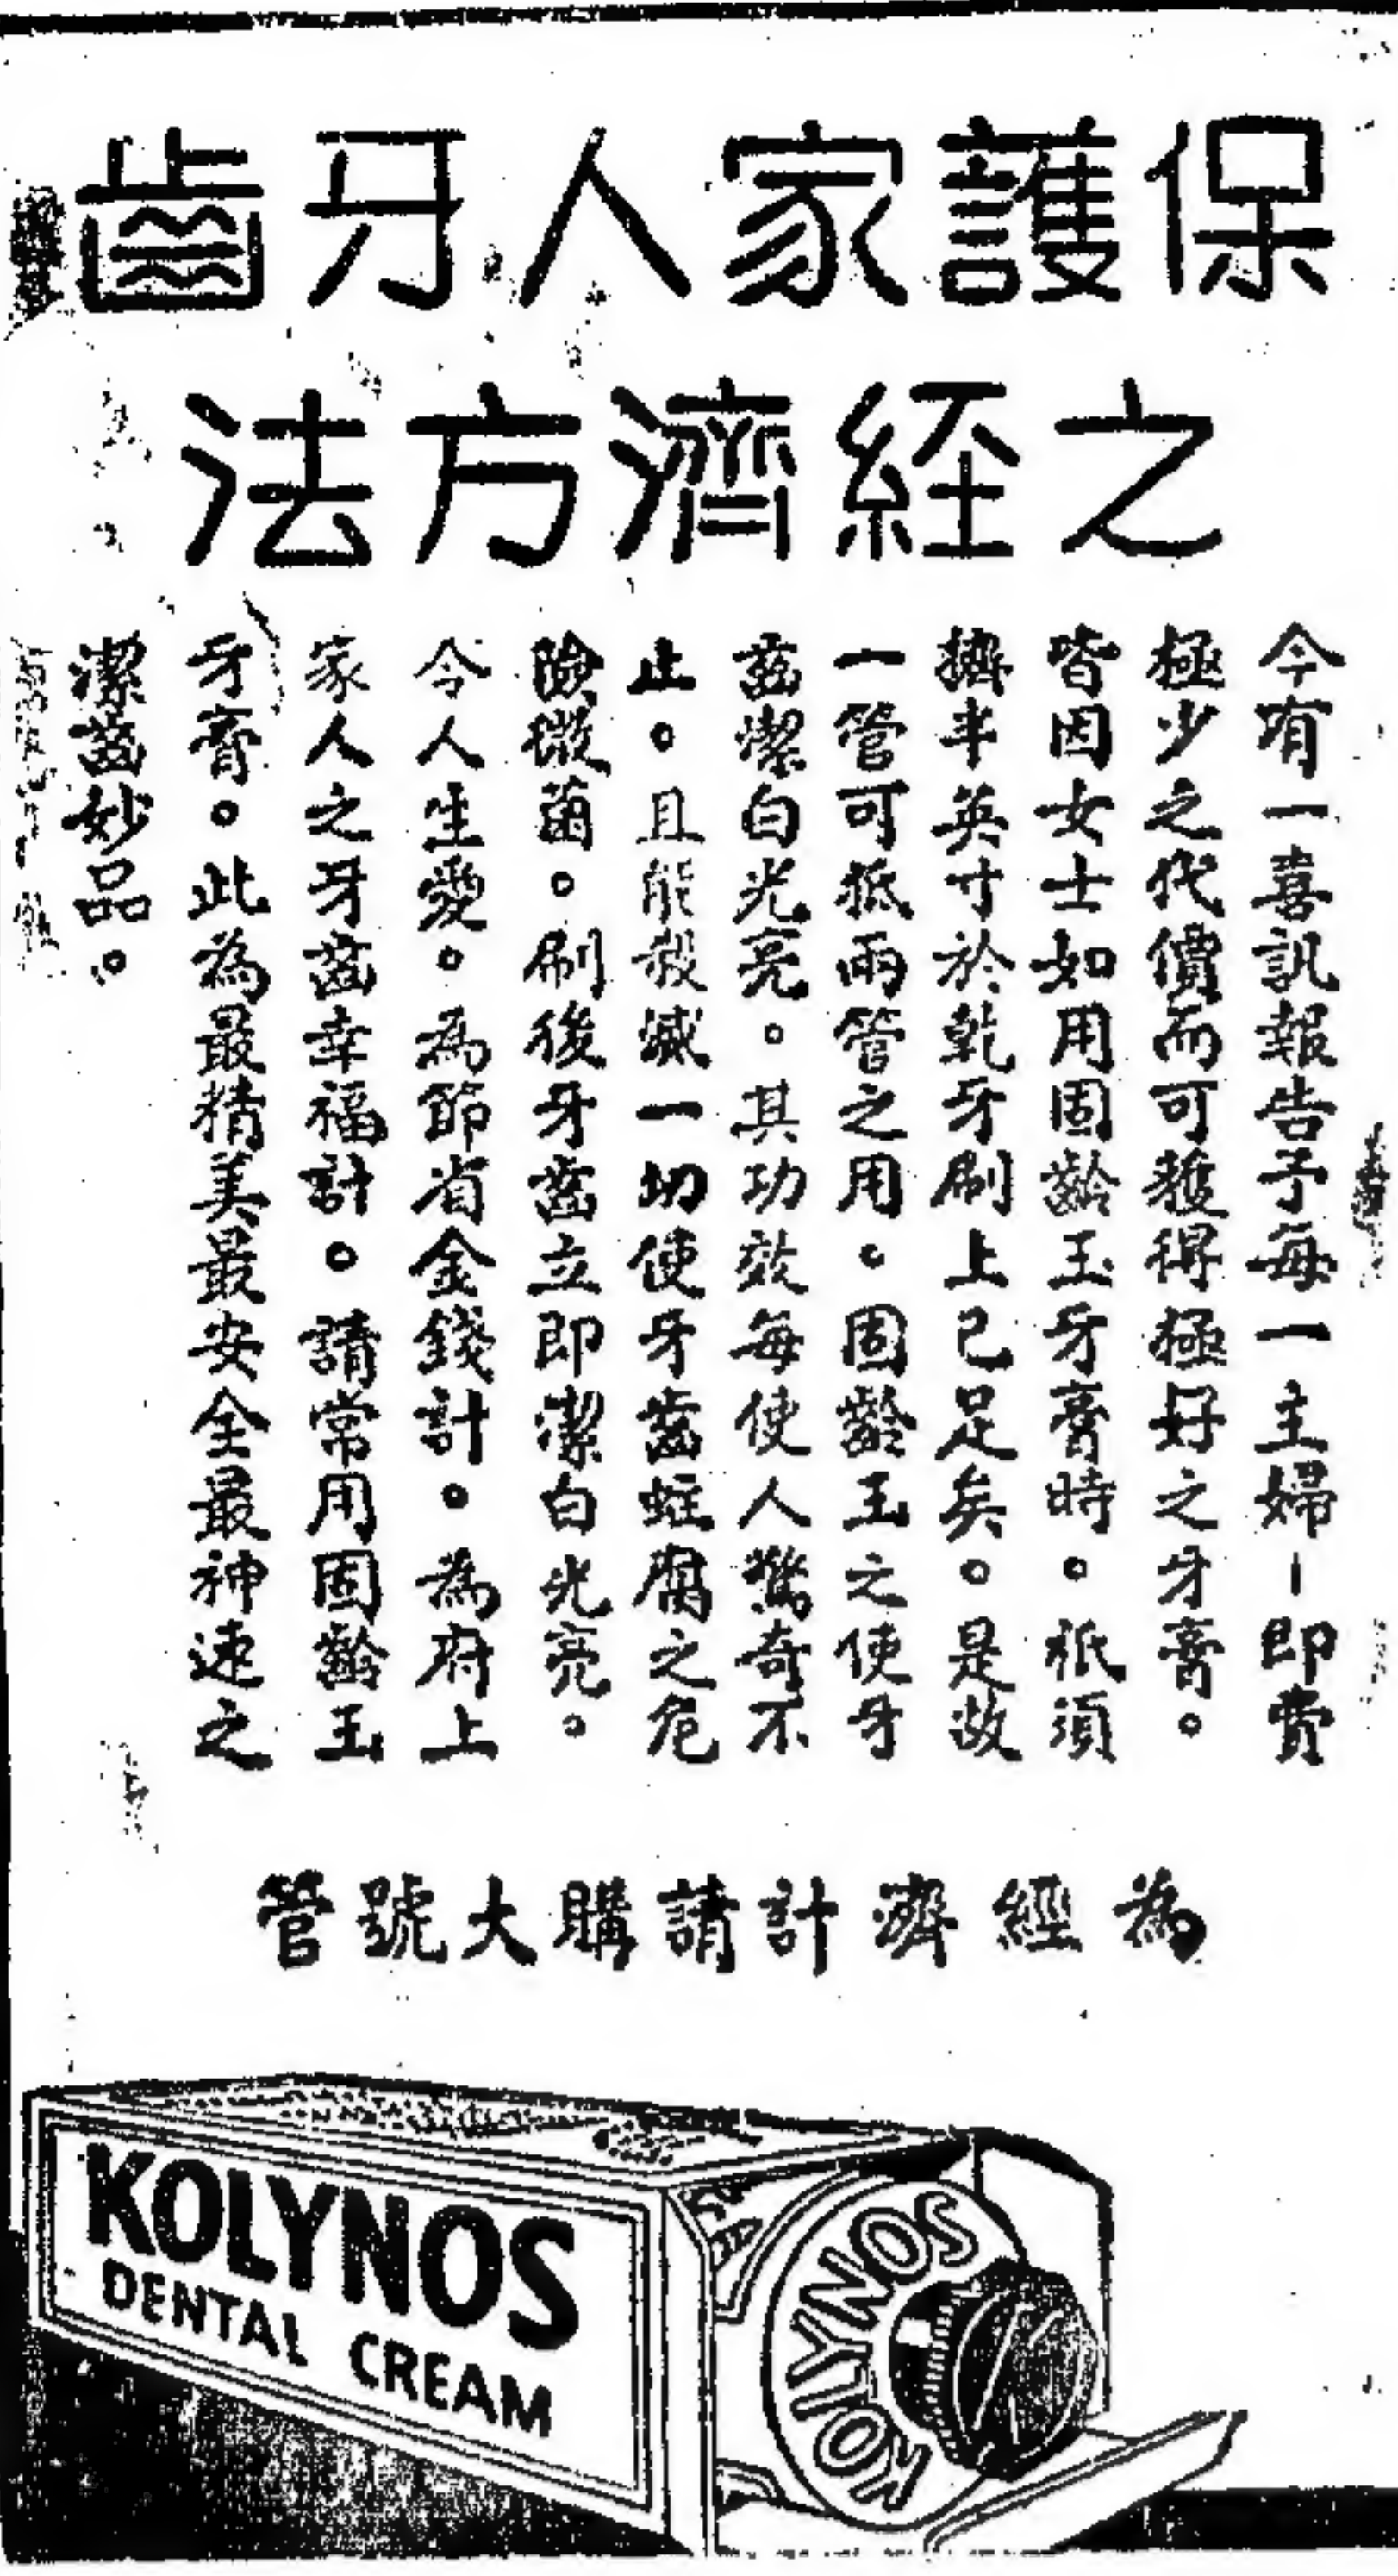 保護家人牙齒
之經濟方法
今有一喜訊報告予每一主婦－即費
極少之代價而可獲得極好之牙膏。
皆因女士如用固齡玉牙膏時。祇須
擠半英寸於乾牙刷上已足矣。是故
一管可抵兩管之用。固齡玉之使牙
齒潔白光亮。其功效每使人驚奇不
止。且能殺滅一切使牙齒蛀腐之危
險微菌。刷後牙齒立即潔白光亮。
令人生愛。為節省金錢計。為府上
家人之牙齒幸福計。請常用固齡玉
牙膏。此為最精美最安全最神速之
潔齒妙品。
為經濟計請購大號管
KOLYNOS
DENTAL CREAM
KOLYNOS